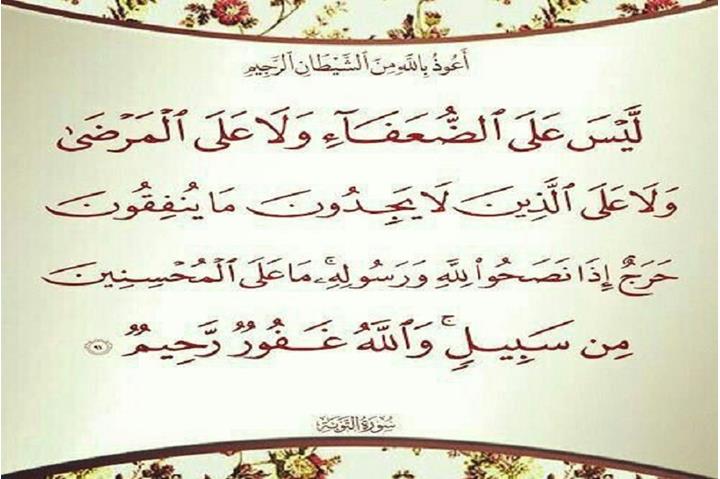 أَعُوذُ بِاللَّهِ مِنَ ٱلشَّيْطَانِ ٱلرَّجِيمِ
لَّيْسَ عَلَى ٱلضُّعَفَآءِ وَلَا عَلَى ٱلْمَرْضَىٰ
وَلَا عَلَى ٱلَّذِينَ لَا يَجِدُونَ مَا يُنفِقُونَ
حَرَجٌ إِذَا نَصَحُوا۟ لِلَّهِ وَرَسُولِهِۦ ۚ مَا عَلَى ٱلْمُحْسِنِينَ
مِن سَبِيلٍ ۚ وَٱللَّهُ غَفُورٌ رَّحِيمٌ ﴿٩١﴾
سُورَةُ التَّوْبَة